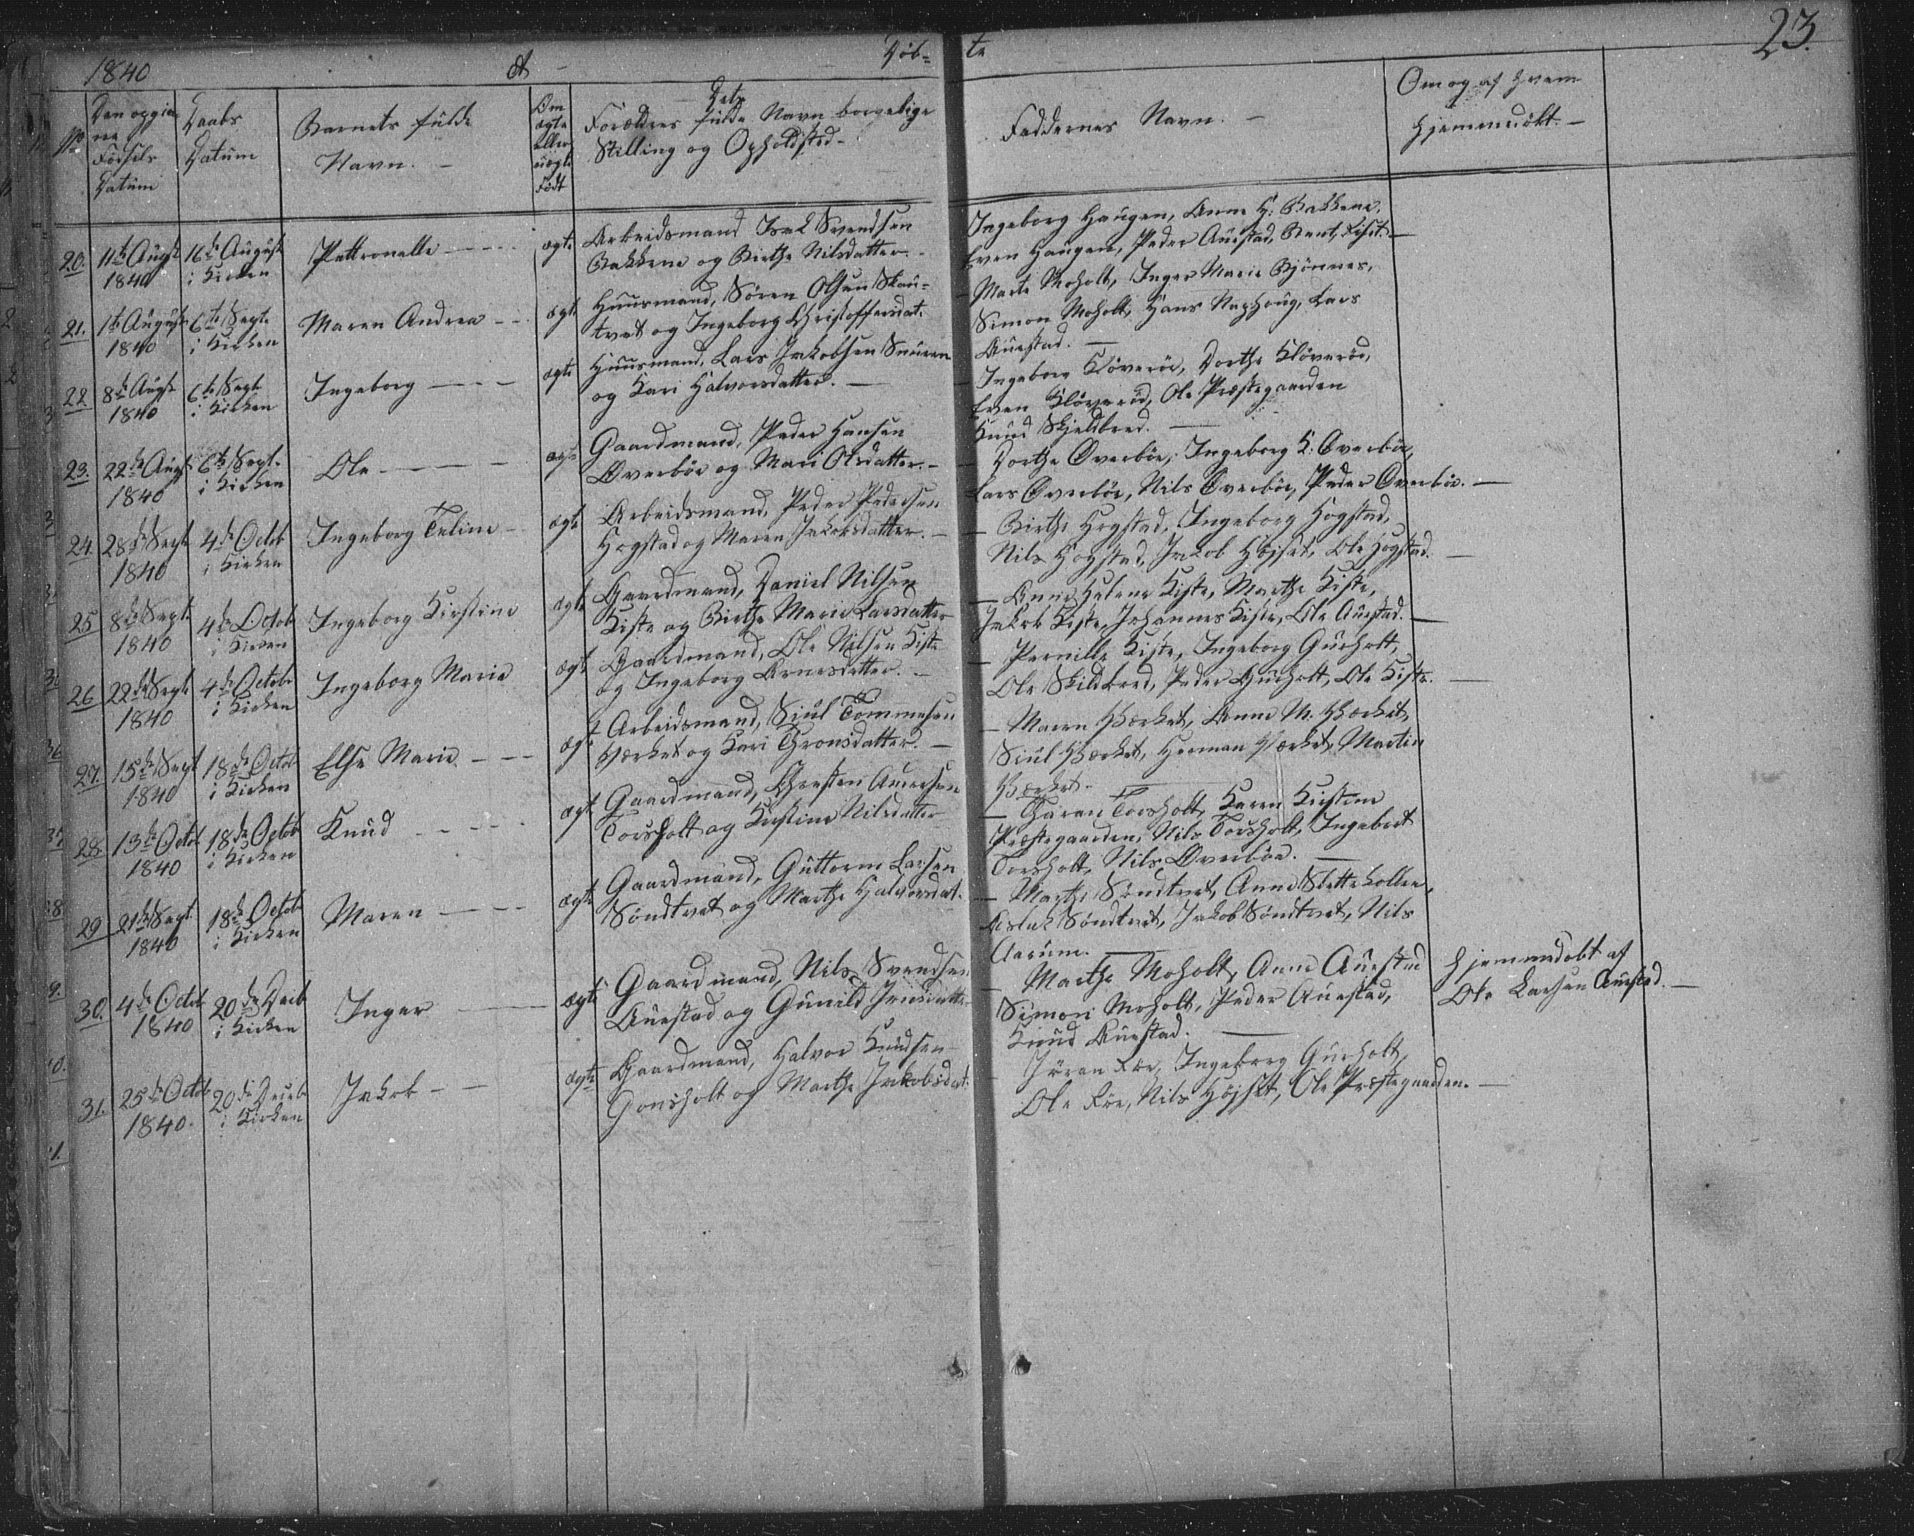 1840 A Døb= te 23.
No Den opgivne Fødsels Datum Daabs Datum Barnets fulde Navn. Om ægte eller uægte Født Forældres fulde Navn borgelige Stilling og Opholdsted. Faddernes Navn. Om og af hvem hjemmedøbt.
20. 11te August 1840 16de August i Kirken Pettronelle ægte Arbeidsmand Isak Svendsen
Bakkene og Birthe Nilsdatter.
Ingeborg Haugen, Anne H. Bakkene,
Even Haugen, Peder Auestad, Bent
21. 1ste August 1840 6te Septe i Kirken Maren Andrea ægte Huusmand, Søren Olsen Skau-
tvet og Ingeborg Christoffersdat.
Marte Moholt, Inger Marie Bjønnes,
Simon Moholt, Hans Raphoug, Lars
Auestad.
22. 8de Augst 1840 6te Sept i Kirken Ingeborg ægte Huusmand, Lars Jakobsen Snuren
og Kari Halvorsdatter.
Ingeborg Kløverøe, Dorthe Kløverøe,
Even Kløverød, Ole Præstegaarden
Knud Skjeldbred.
23. 22de Augst 1840 6te Sept. i Kirken Ole ægte Gaardmand, Peder Hansen
Øverbøe og Mari Olsdatter.
Dorthe Øverbøe, Ingeborg K. Øverbøe,
Lars Øverbøe, Nils Øverbøe, Peder Øverbøe.
24. 28de Sept 1840 4de Octob i Kirken Ingeborg Teline ægte Arbeidsmand, Peder Pedersen
Hogstad og Maren Jakobsdatter.
Birthe Hogstad, Ingeborg Hogstad,
Nils Hogstad, Jakob Høiset, Ole Hogstad.
25 8de Sept 1840 4de Octob i Kirken Ingeborg Kirstine ægte Gaardmand, Daniel Nilsen
Kiste og Birthe Marie Larsdatter
Anne Helene Kiste, Marthe Kiste,
Jakob Kiste, Johannes Kiste, Ole Auestad.
26 22de Sept 1840 4de Octobr i Kirken Ingeborg Marie ægt Gaardmand, Ole Nilsen Kiste
og Ingeborg Arnesdatter.
Pernille Kiste, Ingeborg Gurholt,
Ole Skildbred, Peder Gurholt, Ole Kiste.
27. 15de Sept 1840 18de Octob i Kirken Else Marie ægt Arbeidsmand, Siul Tommesen
Værket og Kari Gronsdatter.
Maren Værket, Anne M. Værket,
Siul Værket, Herman Værket, Martin
Værket.
28. 13de Octob 1840 18de Octob i Kirken Knud ægt Gaardmand, Christen Andersen
Torsholt og Kirstine Nilsdatter
Torsholt, Karen Kirstine
Præstegaarden, Nils Torsholt, Ingebret
Torsholt, Nils Øverbøe.
29 21de Sept. 1840 18de Octob i Kirken Maren ægte Gaardmand, Guttorm Larsen
Søndtvet og Marthe Halvorsdat.
Marthe Søndtvet, Anne Slettekollen,
Aslak Søndtvet, Jakob Søndtvet, Nils
Aarum.
30. 4de Octob 1840 20de Decb i Kirken Inger ægte Gaardmand, Nils Svendsen
Auestad og Gunild Jensdatter
Marthe Moholt, Anne Auestad
Simon Moholt, Peder Auestad,
Knud Auestad.
Hjemmedøbt af
Ole Larsen Auestad.
31. 25de Octob 1840. 20de Deceb i Kirken Jakob ægte Gaardmand, Halvor Knudsen
Gonsholt og Marthe Jakobsdat.
Jøran Røe, Ingeborg Gurholt,
Ole Røe, Nils Høiset, Ole Præstegaarden.